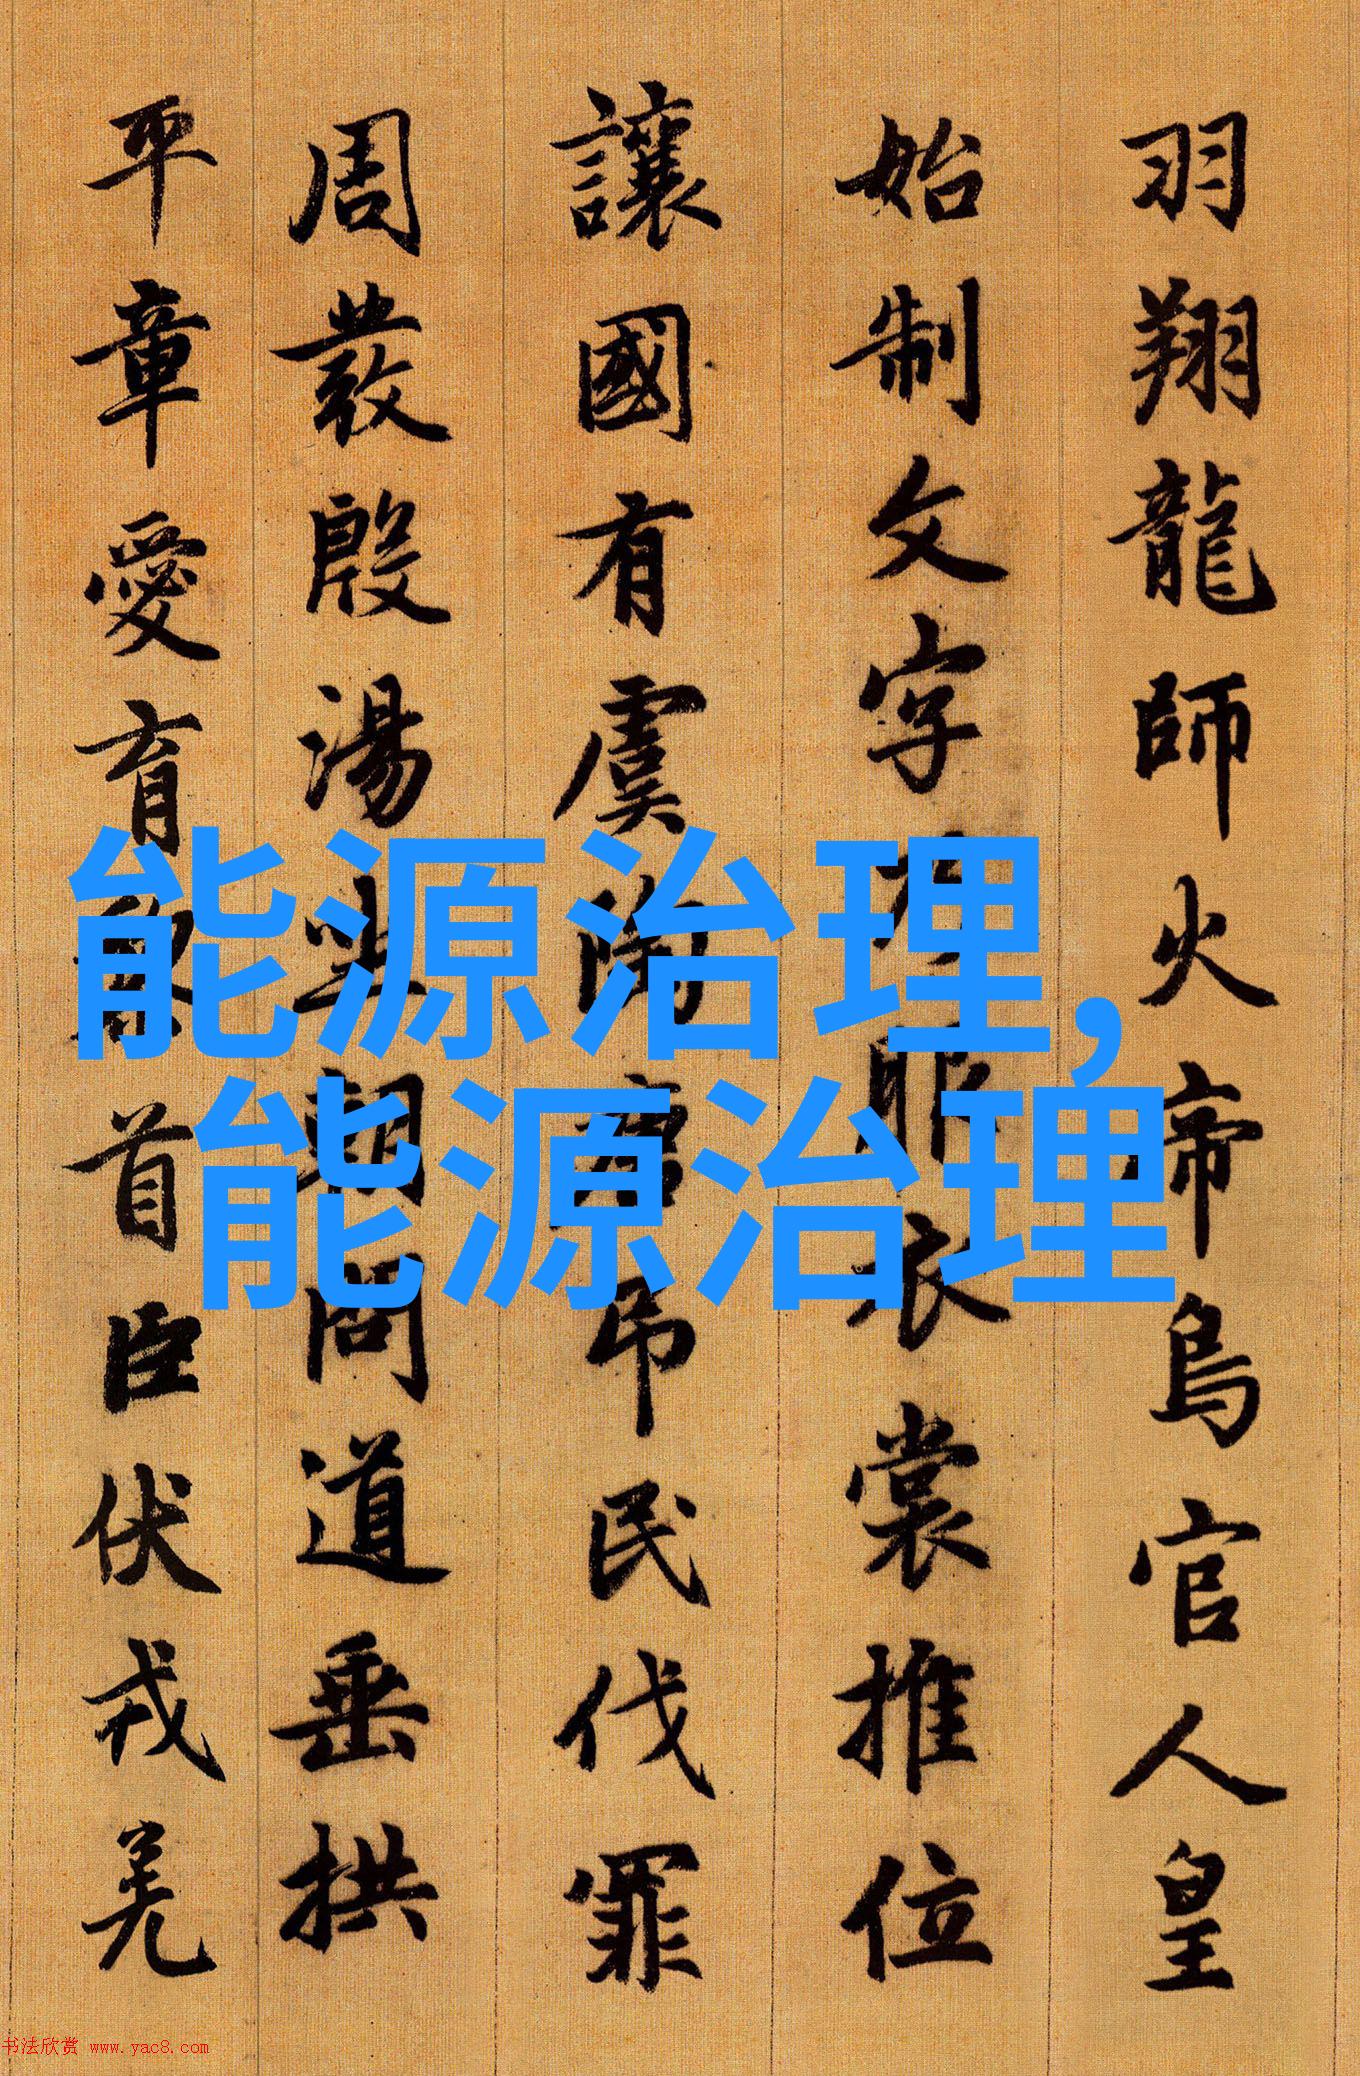 羽翔龍師火帝鳥官人皇
始制文字乃服衣裳推位
讓國有虞陶唐吊民伐罪
周發殷湯坐朝問道垂拱
平章愛育黎首臣伏戎羌
能源治理,
能源治理
书法欣赏 www.yac8.com